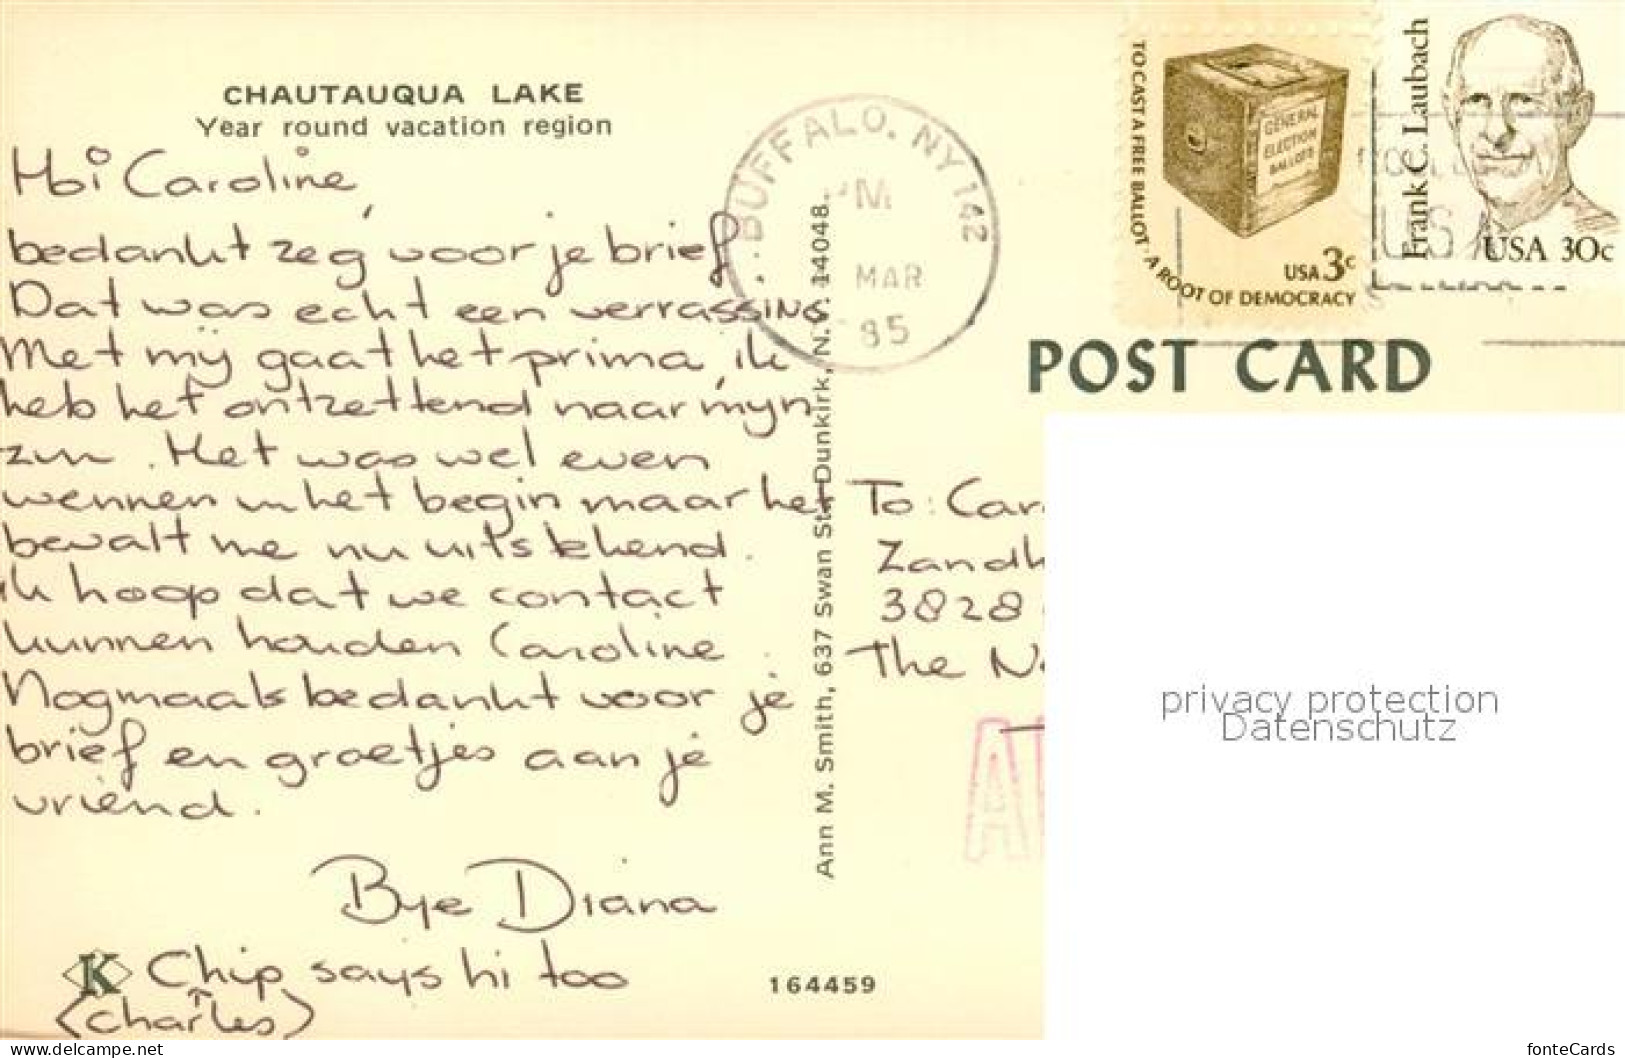 CHAUTAUQUA LAKE
Year round vacation region
Hoi Caroline,
bedankt zeg voor je brief
Dat was echt een verrassing
Met mij gaat het prima, ik
heb het ontzettend naar mijn
zin. Het was wel even
wennen in het begin maar het
bevalt me nu uitstekend.
ik hoop dat we contact
kunnen houden Caroline.
Nogmaals bedankt voor je
brief en groetjes aan je
vriend.
Bye Diana
K Chip says hi too
(charles)
164459
Ann M. Smith, 637 Swan St., Dunkirk, N.Y. 14048.
BUFFALO, NY 142
PM
MAR
85
TO CAST A FREE BALLOT A ROOT OF DEMOCRACY
GENERAL
ELECTION
BALLOTS
USA 3c
Frank C. Laubach
USA 30c
POST CARD
To: Car
Zandh
3828
The Ne
A
privacy protection
Datenschutz
www.delcampe.net/postcards
fonteCards